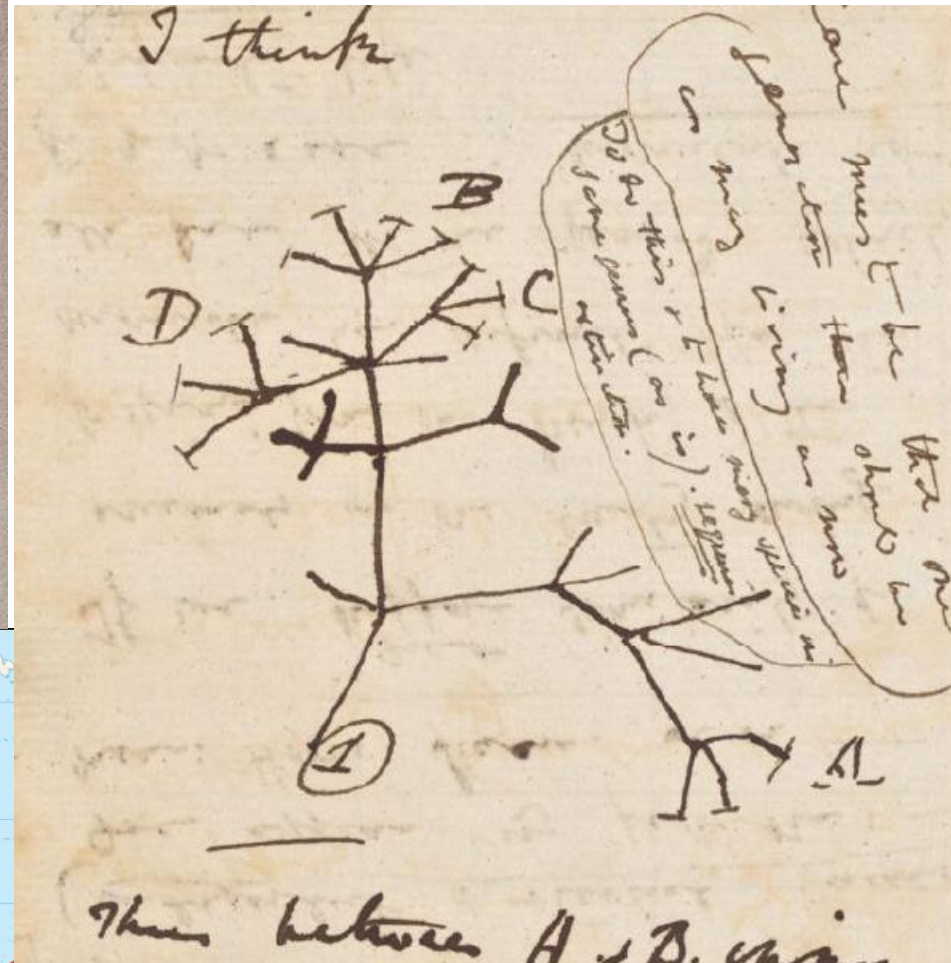 I think
B
D
C
one must be that one
generation then should be
as many living as now
To do this & to have many species in
same genus (as is). requires
extinction.
A
1
Thus between A & B.